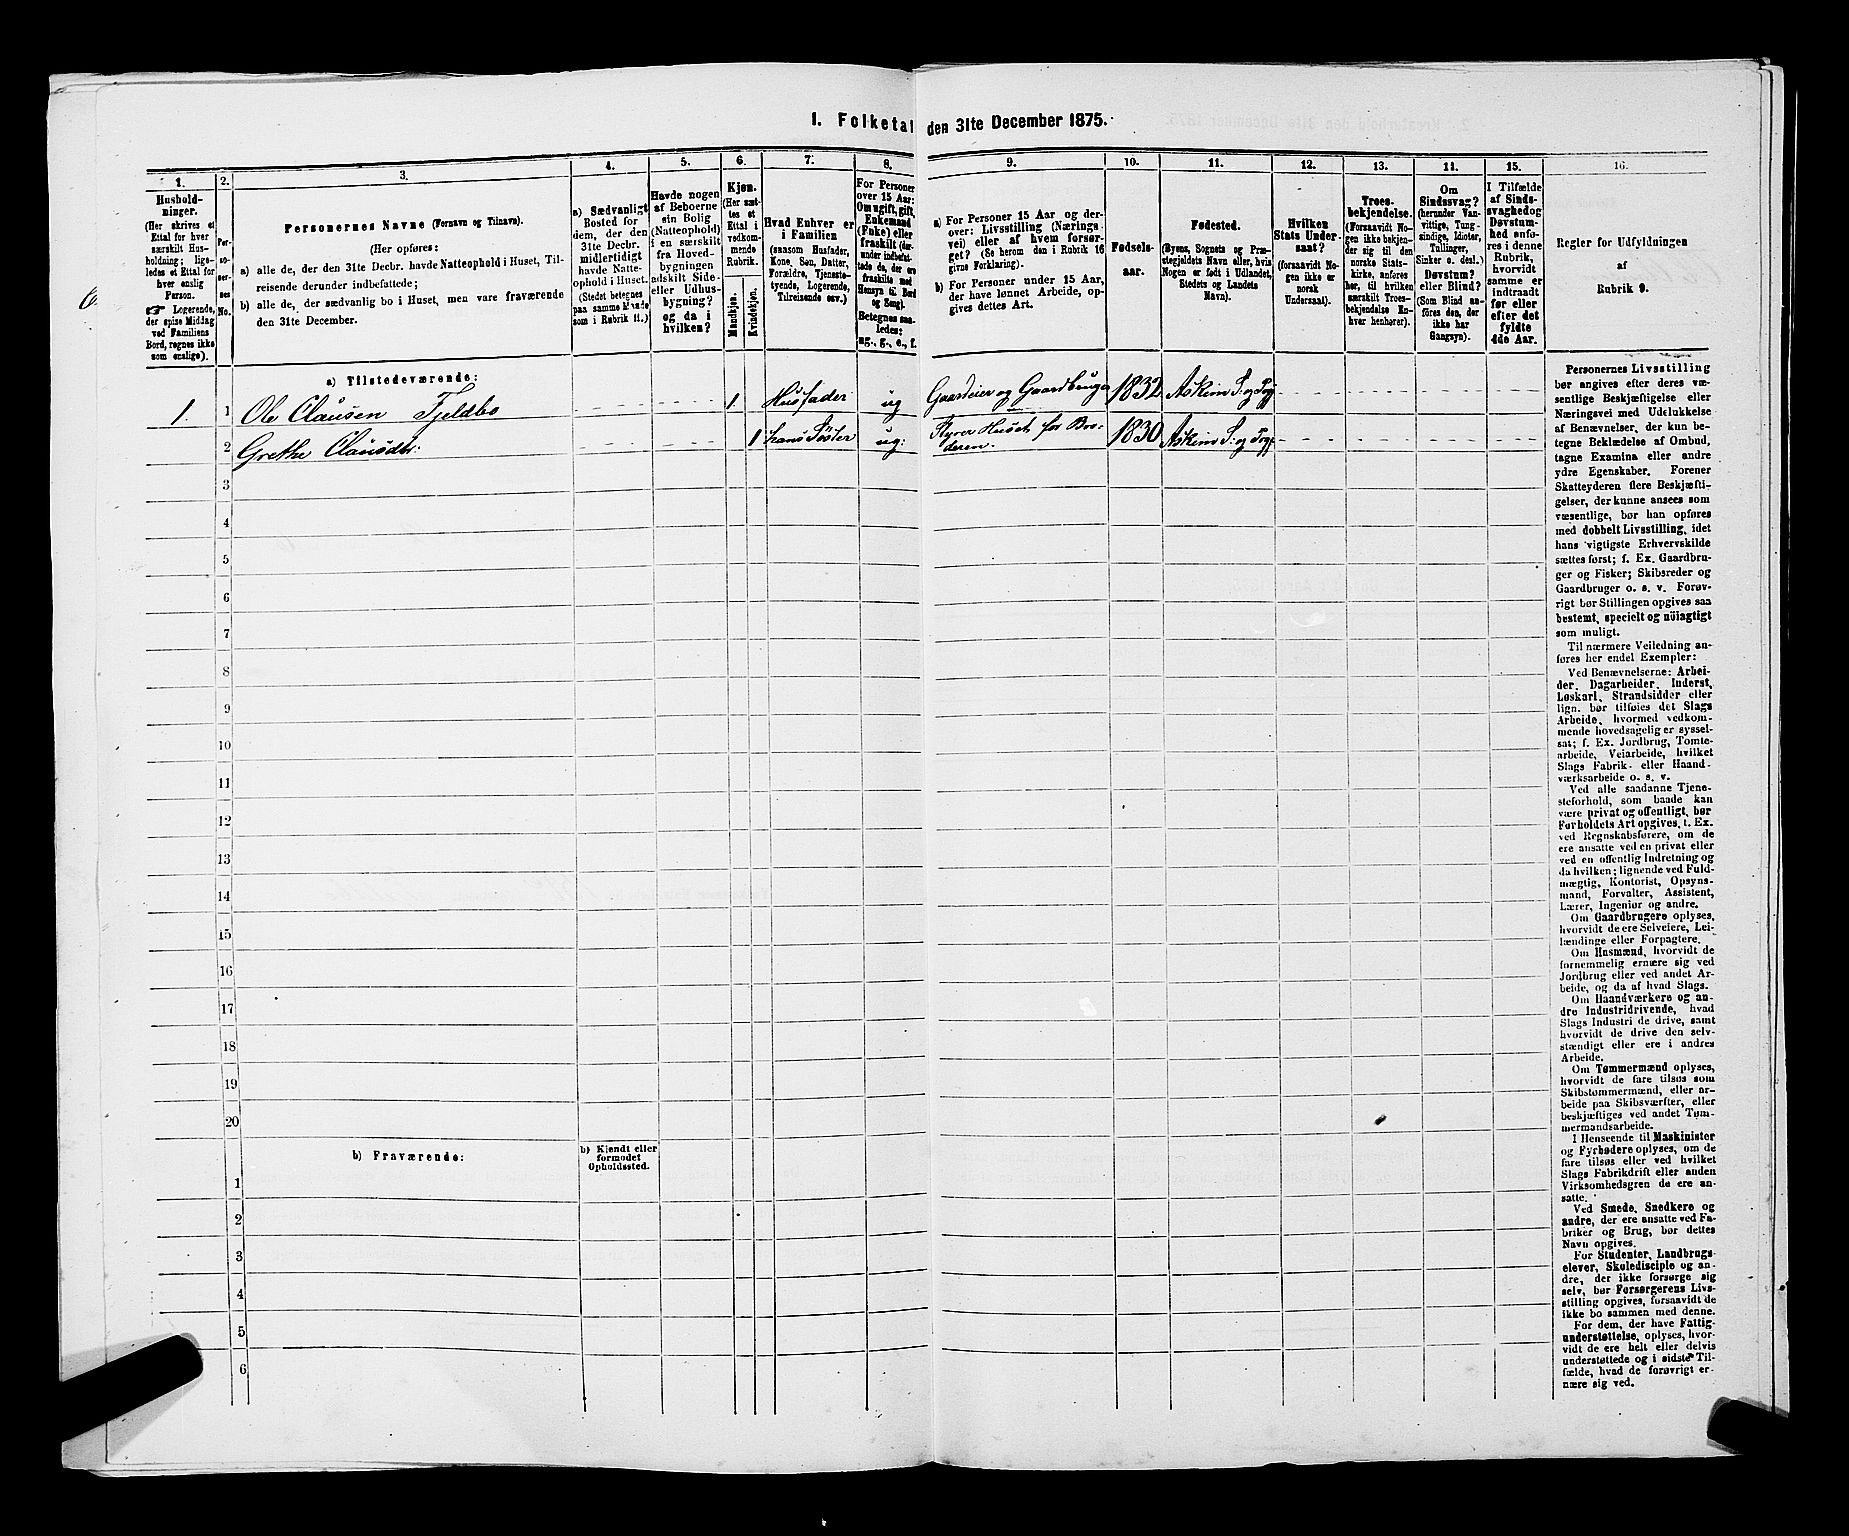 I. Folketal den 31te December 1875.
1.
Hushold-
ninger.
(Her skrives et
Ettal for hver
særskilt Hus-
holdning; lige-
ledes et Ettal for
hver enslig
Person.
☞ Logerende,
der spise Middag
ved Familiens
Bord, regnes ikke
som enslige).
2.
Per-
so-
ner-
nes
No.
3.
Personernes Navne (Fornavn og Tilnavn).
(Her opføres:
a) alle de, der den 31te Decbr. havde Natteophold i Huset, Til-
reisende derunder indbefattede;
b) alle de, der sædvanlig bo i Huset, men vare fraværende
den 31te December.
4.
a) Sædvanligt
Bosted for
dem, der den
31te Decbr.
midlertidigt
havde Natte-
ophold i Huset.
(Stedet betegnes
paa samme Maade
som i Rubrik 11.)
5.
Havde nogen
af Beboerne
sin Bolig
(Natteophold)
i en særskilt
fra Hoved-
bygningen
adskilt Side-
eller Udhus-
bygning?
og da i
hvilken?
6.
Kjøn.
(Her sæt-
tes et
Ettal i
vedkom-
mende
Rubrik.
Mandkjøn.
Kvindekjøn.
7.
Hvad Enhver er
i Familien
(saasom Husfader,
Kone, Søn, Datter,
Forældre, Tjeneste-
tyende, Logerende,
Tilreisende osv.)
8.
For Personer
over 15 Aar:
Om ugift, gift,
Enkemand
(Enke) eller
fraskilt (der-
under indbefat-
tede de, der ere
fraskilte med
Hensyn til Bord
og Seng).
Betegnes saa-
ledes:
ug., g., e., f.
9.
a) For Personer 15 Aar og der-
over: Livsstilling (Nærings-
vei) eller af hvem forsør-
get. (Se herom den i Rubrik 16
givne Forklaring).
b) For Personer under 15 Aar,
der have lønnet Arbeide, op-
gives dettes Art.
10.
Fødsels-
aar.
11.
Fødested.
(Byens, Sognets og Præ-
stegjeldets Navn eller, hvis
Nogen er født i Udlandet,
Stedets og Landets
Navn).
12.
Hvilken
Stats Under-
saat?
(forsaavidt No-
gen ikke er
norsk
Undersaat).
13.
Troes-
bekjendelse.
(Forsaavidt No-
gen ikke bekjen-
der sig til den
norske Stats-
kirke, anføres
her, til hvilken
særskilt Troes-
bekjendelse En-
hver henhører).
14.
Om
Sindssvag?
(herunder Van-
vittige, Tung-
sindige, Idioter,
Tullinger,
Sinker o. desl.)
Døvstum?
eller Blind?
(Som Blind an-
føres den, der
ikke har
Gangsyn).
15.
I Tilfælde
af Sinds-
svaghed og
Døvstum-
hed anfø-
res i denne
Rubrik,
hvorvidt
samme er
indtraadt
før eller
efter det
fyldte
4de Aar.
16.
Regler for Udfyldningen
af
Rubrik 9.
a) Tilstedeværende:
1. 1 Ole Clausen Fjeldbo 1 Husfader ug Gaardeier og Gaardbruger 1832 Askim S. og Prgj
2 Grethe Clausdtr. 1 hans Søster ug: Styrer Huset for Bro-
deren. 1830 Askim S: og Prgj
3
4
5
6
7
8
9
10
11
12
13
14
15
16
17
18
19
20
b) Fraværende: b) Kjendt eller
formodet
Opholdssted.
1
2
3
4
5
6
Personernes Livsstilling
bør angives efter deres væ-
sentlige Beskjæftigelse eller
Næringsvei med Udelukkelse
af Benævnelser, der kun be-
tegne Beklædelse af Ombud,
tagne Examina eller andre
ydre Egenskaber. Forener
Skatteyderen flere Beskjæfti-
gelser, der kunne ansees som
væsentlige, bør han opføres
med dobbelt Livsstilling, idet
hans vigtigste Erhvervskilde
sættes først; f. Ex. Gaardbru-
ger og Fisker; Skibsreder og
Gaardbruger o. s. v. Forøv-
rigt bør Stillingen opgives saa
bestemt, specielt og nöiagtigt
som muligt.
Til nærmere Veiledning an-
føres her endel Exempler:
Ved Benævnelserne: Arbei-
der, Dagarbeider, Inderst,
Løskarl, Strandsidder eller
lign. bør tilføies det Slags
Arbeide, hvormed vedkom-
mende hovedsagelig er syssel-
sat; f. Ex. Jordbrug, Tomte-
arbeide, Veiarbeide, hvilket
Slags Fabrik- eller Haand-
værksarbeide o. s. v.
Ved alle saadanne Tjene-
steforhold, som baade kan
være privat og offentligt, bør
Forholdets Art opgives, t. Ex.
ved Regnskabsførere, om de
ere ansatte ved en privat eller
ved en offentlig Indretning og
da hvilken; lignende ved Fuld-
mægtig, Kontorist, Opsyns-
mand, Forvalter, Assistent,
Lærer, Ingeniør og andre.
Om Gaardbrugere oplyses,
hvorvidt de ere Selveiere, Lei-
lændinge eller Forpagtere.
Om Husmænd, hvorvidt de
fornemmelig ernære sig ved
Jordbrug eller ved andet Ar-
beide, og da af hvad Slags.
Om Haandværkere og an-
dre Industridrivende, hvad
Slags Industri de drive, samt
hvorvidt de drive den selv-
stændigt eller ere i andres
Arbeide.
Om Tømmermænd oplyses,
hvorvidt de fare tilsøs som
Skibstømmermænd, eller ar-
beide paa Skibsværfter, eller
beskjæftiges ved andet Tøm-
mermandsarbeide.
I Henseende til Maskinister
og Fyrbødere oplyses, om de
fare tilsøs eller ved hvilket
Slags Fabrikdrift eller anden
Virksomhedsgren de ere an-
satte.
Ved Smede, Snedkere og
andre, der ere ansatte ved Fa-
briker og Brug, bør dettes
Navn opgives.
For Studenter, Landbrugs-
elever, Skoledisciple og an-
dre, der ikke forsørge sig
selv, bør Forsørgerens Livs-
stilling opgives, forsaavidt de
ikke bo sammen med denne.
For dem, der have Fattig-
understøttelse, oplyses, hvor-
vidt de ere helt eller delvis
understøttede og i sidste Til-
fælde, hvad de forøvrigt er-
nære sig ved.